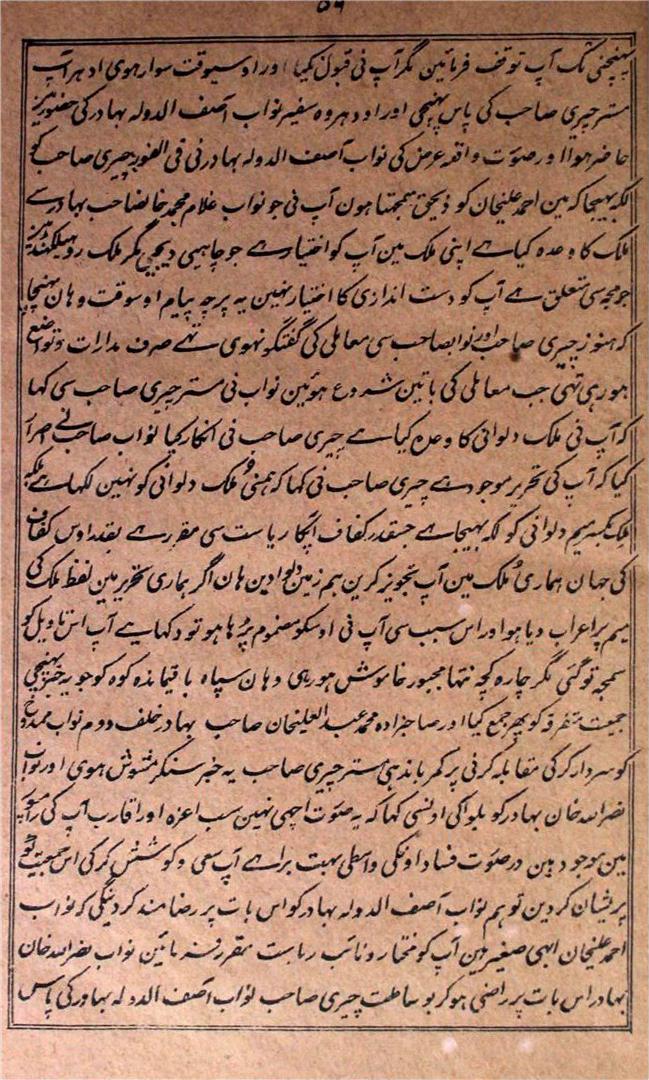 ۵۶
پہنچنی تک آپ توقف فرمائین مگر آپ نی قبول نکیا اور اوسیوقت سوار ہوی ادہر آپ
مسترچیری صاحب کی پاس پہنچی اور اودہر وہ سفیر نواب آصف الدولہ بہادر کی حضور مین
حاضر ہوا اور صورت واقعہ عرض کی نواب آصف الدولہ بہادر نی فی الفور چیری صاحب کو
لکہہ بہیجا کہ مین احمد علیخان کو ذیحق سمجہتا ہون آپ نی جو نواب غلام محمد خانصاحب بہادر سے
ملک کا وعدہ کیا ہے اپنی ملک مین آپ کو اختیار ہے جو چاہیی دیجیی مگر ملک روہیلکہنڈ مین
جو مجہ سی متعلق ہے آپ کو دست اندازی کا اختیار نہین یہ پرچہ پیام اوسوقت وہان پہنچا
کہ ہنوز چیری صاحب اور نوابصاحب سی معاملی کی گفتگو نہوی تہے صرف مدارات و تواضع
ہو رہی تہی جب معاملی کی باتین شروع ہوئین نواب نی مسترچیری صاحب سی کہا
کہ آپ نی ملک دلوانی کا وعدہ کیا ہے چیری صاحب نی انکار کیا نواب صاحب نے اصرار
کیا کہ آپ کی تحریر موجود ہے چیری صاحب نی کہا کہ ہمنی ملک دلوانی کو نہین لکہا ہے بلکہ
ملک بکسر میم دلوانی کو لکہہ بہیجا ہے جسقدر کفاف آپکا ریاست سی مقرر ہے بقدر اوس کفاف
کی جہان ہماری ملک مین آپ تجویز کرین ہم زمین دلوادین ہان اگر ہماری تحریر مین لفظ ملک کی
میم پر اعراب دیا ہو اور اس سبب سی آپ نی اوسکو مضموم پڑہا ہو تو دکہایے آپ اس تاویل کو
سمجہ تو گئی مگر چارہ کچہ نتہا مجبور خاموش ہو رہی وہان سپاہ باقیماندہ کوہ کو جو یہ خبر پہنچی
جمعیت متفرقہ کو پہر جمع کیا اور صاحبزادہ محمد عبد العلیخان صاحب بہادر خلف دوم نواب ممدوح
کو سردار کر کی مقابلہ کرنی پر کمر باندہی مسترچیری صاحب یہ خبر سنکر مشوش ہوی اور نواب
نصر اللہ خان بہادر کو بلوا کی اونسی کہا کہ یہ صورت اچہی نہین سب اعزہ اور اقارب آپ کی رامپور
مین موجود ہین در صورت فساد اونکی واسطی بہت برا ہے آپ سعی و کوشش کر کی اس جمعیت کو
پریشان کر دین تو ہم نواب آصف الدولہ بہادر کو اس بات پر رضامند کر دینگی کہ نواب
احمد علیخان ابہی صغیر ہین آپ کو مختار و نائب ریاست مقرر فرمائین نواب نصر اللہ خان
بہادر اس بات پر راضی ہو کر بوساطت چیری صاحب نواب آصف الدولہ بہادر کی پاس